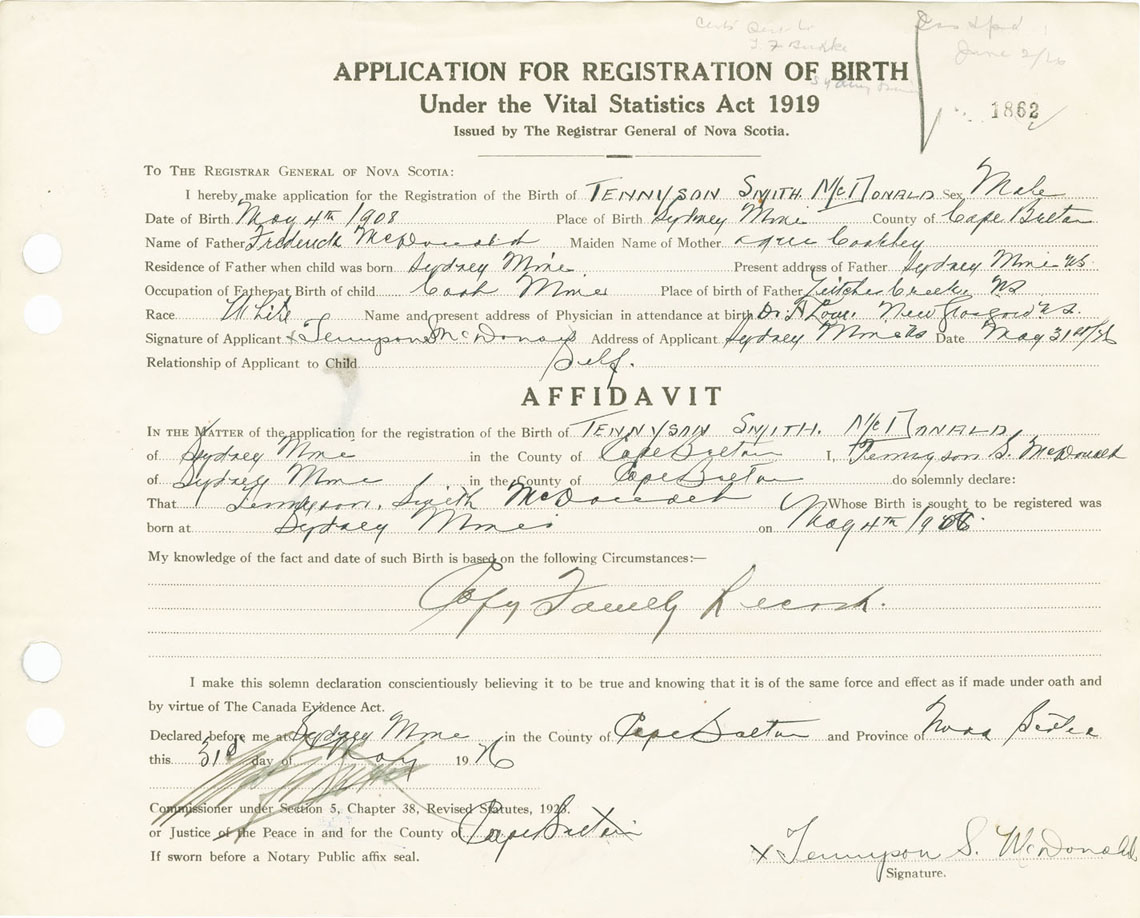 June 2/26
APPLICATION FOR REGISTRATION OF BIRTH
Under the Vital Statistics Act 1919
1862
Issued by The Registrar General of Nova Scotia.
TO THE REGISTRAR GENERAL OF NOVA SCOTIA:
I hereby make application for the Registration of the Birth of TENNYSON SMITH McDONALD Sex Male
Date of Birth May 4th 1908 Place of Birth Sydney Mines County of Cape Breton
Name of Father Frederick McDonald Maiden Name of Mother Coakley
Residence of Father when child was born Sydney Mines Present address of Father Sydney Mines NS
Occupation of Father at Birth of child Coal Mines Place of birth of Father Leitches Creek NS
Race White Name and present address of Physician in attendance at birth Dr. Love. New Glasgow N.S.
Signature of Applicant x Tennyson S McDonald Address of Applicant Sydney Mines NS Date May 31st/26
Relationship of Applicant to Child Self.
AFFIDAVIT
IN THE MATTER of the application for the registration of the Birth of TENNYSON SMITH. McDONALD
of Sydney Mines in the County of Cape Breton I, Tennyson S. McDonald
of Sydney Mines in the County of Cape Breton do solemnly declare:
That Tennyson Smith McDonald Whose Birth is sought to be registered was
born at Sydney Mines on May 4th 1908.
My knowledge of the fact and date of such Birth is based on the following Circumstances:—
Copy Family Record.
I make this solemn declaration conscientiously believing it to be true and knowing that it is of the same force and effect as if made under oath and
by virtue of The Canada Evidence Act.
Declared before me at Sydney Mines in the County of Cape Breton and Province of Nova Scotia
this 31st day of May 1926
Commissioner under Section 5, Chapter 38, Revised Statutes, 1923.
or Justice of the Peace in and for the County of Cape Breton
If sworn before a Notary Public affix seal.
x Tennyson S. McDonald
Signature.